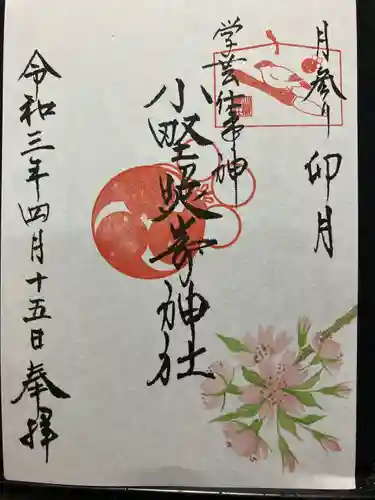 月参り 卯月
学芸仕事神
小野照崎神社
令和三年四月十五日奉拝